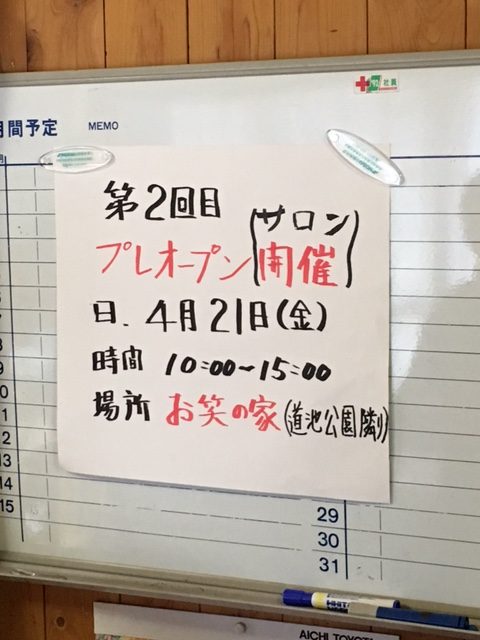 社員
月間予定 MEMO
第2回目
プレオープン(サロン開催)
日.4月21日(金)
時間 10:00~15:00
場所 お笑の家(道池公園隣り)
12
13
14
15
29
30
31
AICHI TOYOT